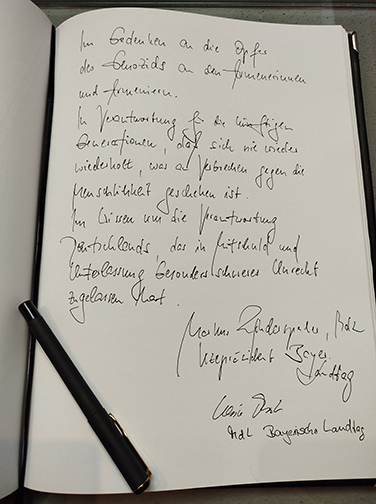 Im Gedenken an die Opfer
des Genozids an den Armenierinnen
und Armeniern.
In Verantwortung für die künftigen
Generationen, daß sich nie wieder
wiederholt, was an Verbrechen gegen die
Menschlichkeit geschehen ist.
Im Wissen um die Verantwortung
Deutschlands, das in Mitschuld und
Unterlassung besonders schweres Unrecht
zugelassen hat.
Markus Rinderspacher, MdL
Vizepräsident Bayer.
Landtag
MdL Bayerischer Landtag